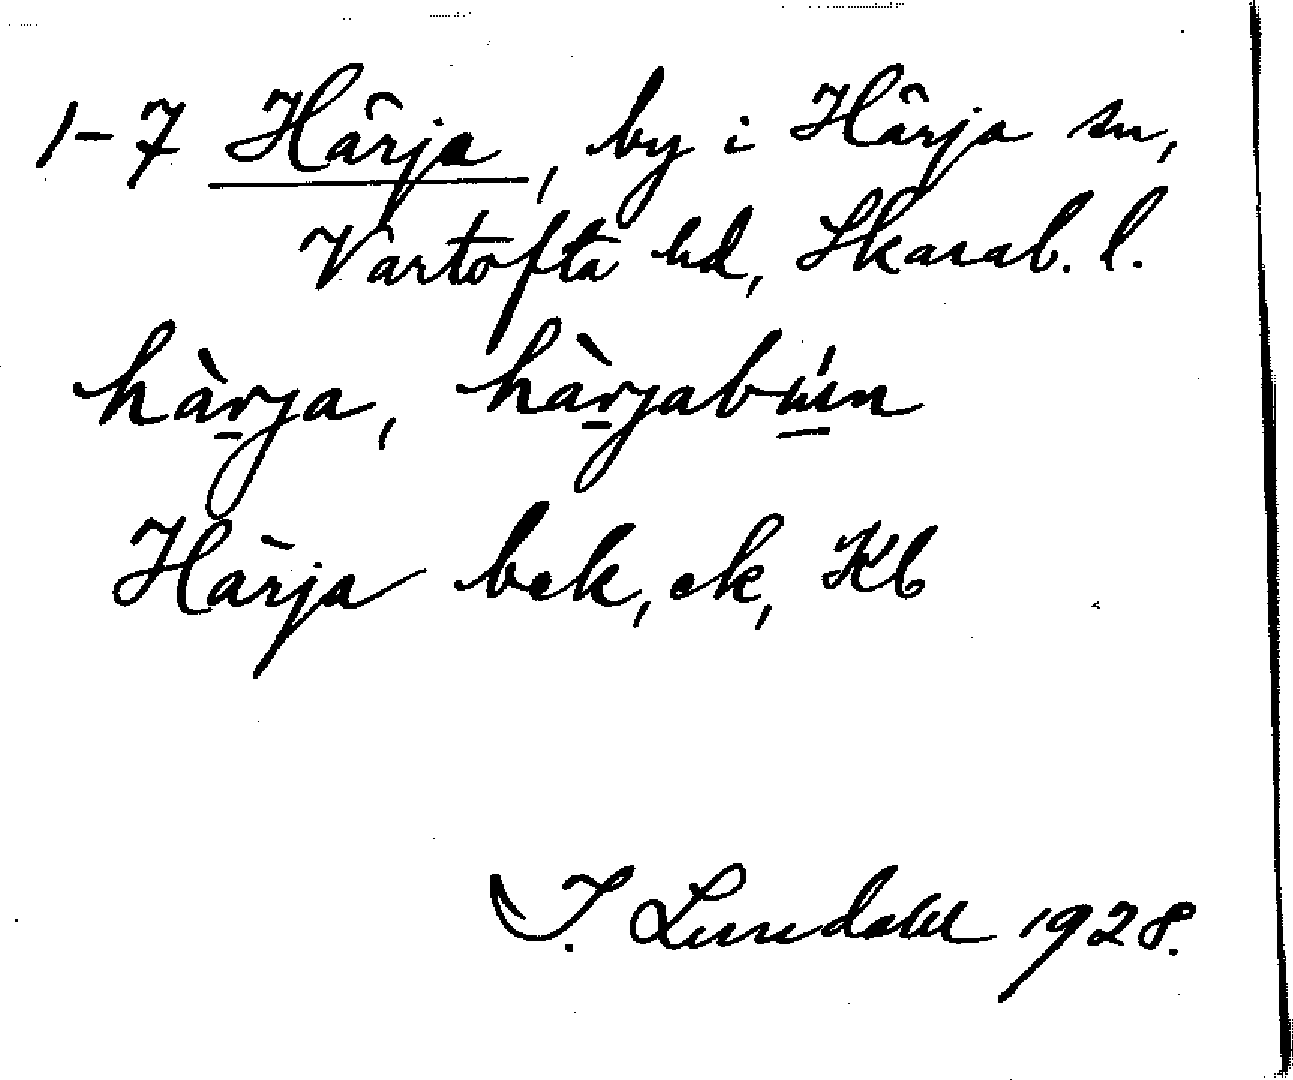 1-7 Härja, by i Härja sn,
Vartofta hd, Skarab. l.
hàrja, hàrjabı́n
Härja bek, ek, Kb
I. Lundahl 1928.